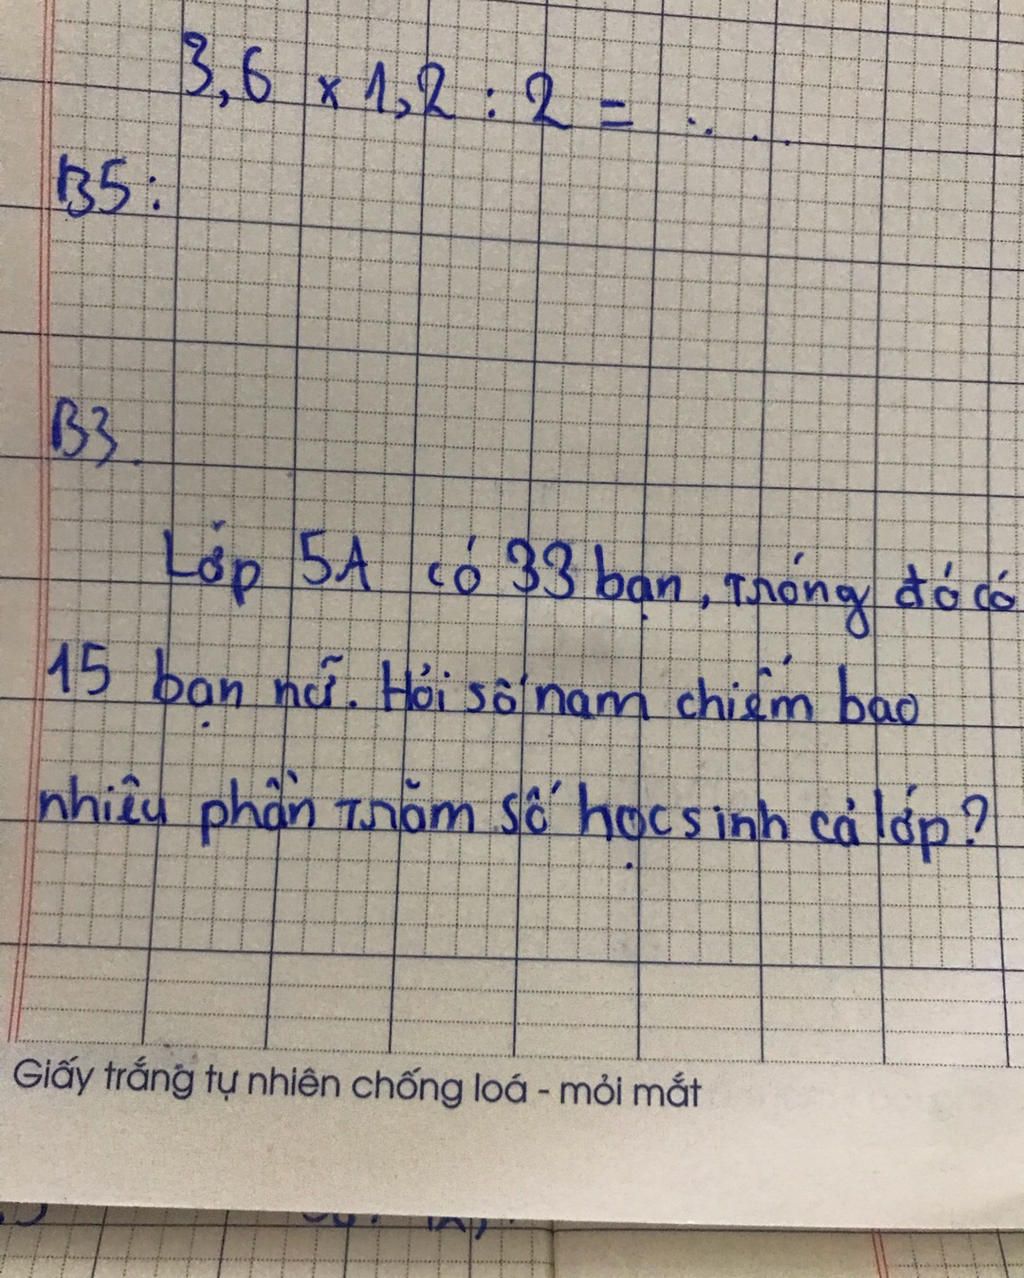 3,6 x 1,2 : 2 = .....
B5:
B3.
Lớp 5A có 33 bạn, trong đó có
15 bạn nữ. Hỏi số nam chiếm bao
nhiêu phần trăm số học sinh cả lớp?
Giấy trắng tự nhiên chống loá - mỏi mắt